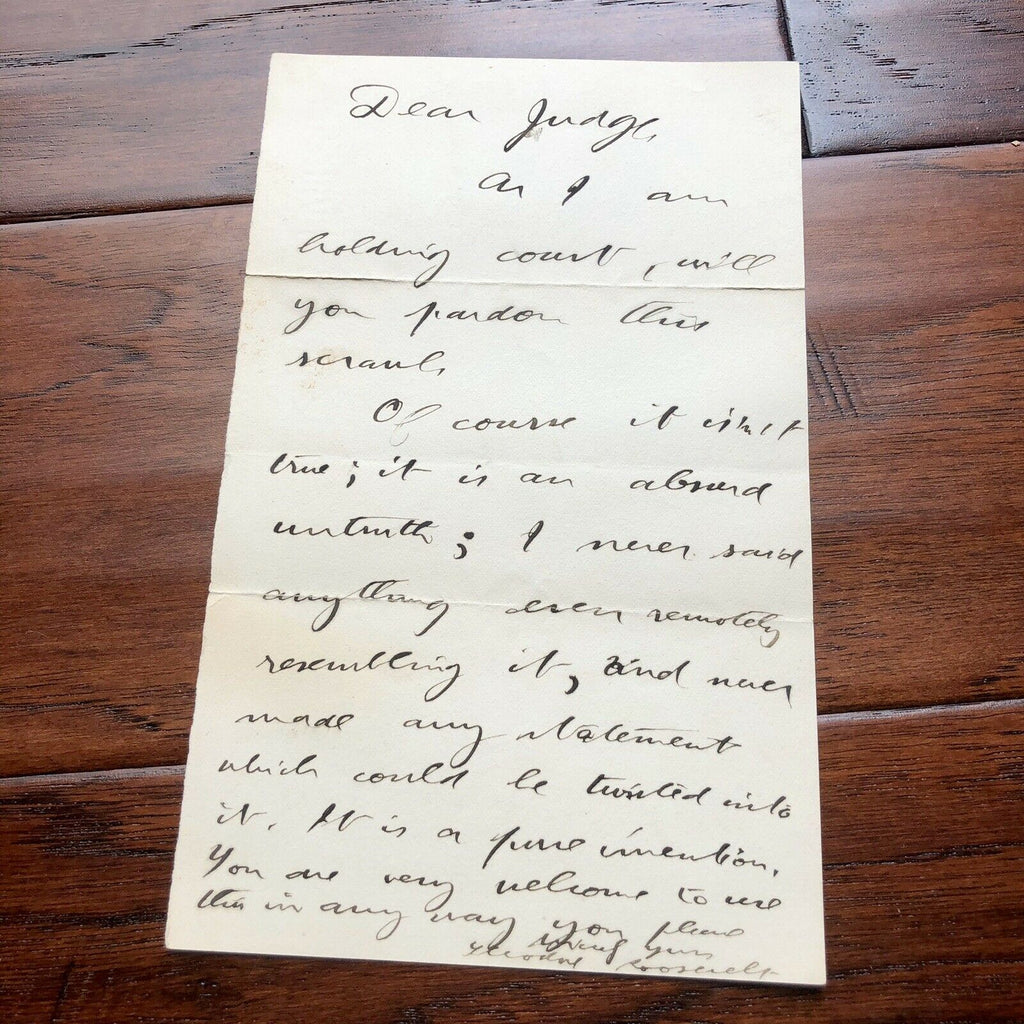 Dear Judge,
As I am
holding court, will
you pardon this
scrawl.
Of course it isn't
true; it is an absurd
untruth; I never said
anything even remotely
resembling it, and never
made any statement
which could be twisted into
it. It is a pure invention.
You are very welcome to use
this in any way you please
yours
Theodore Roosevelt